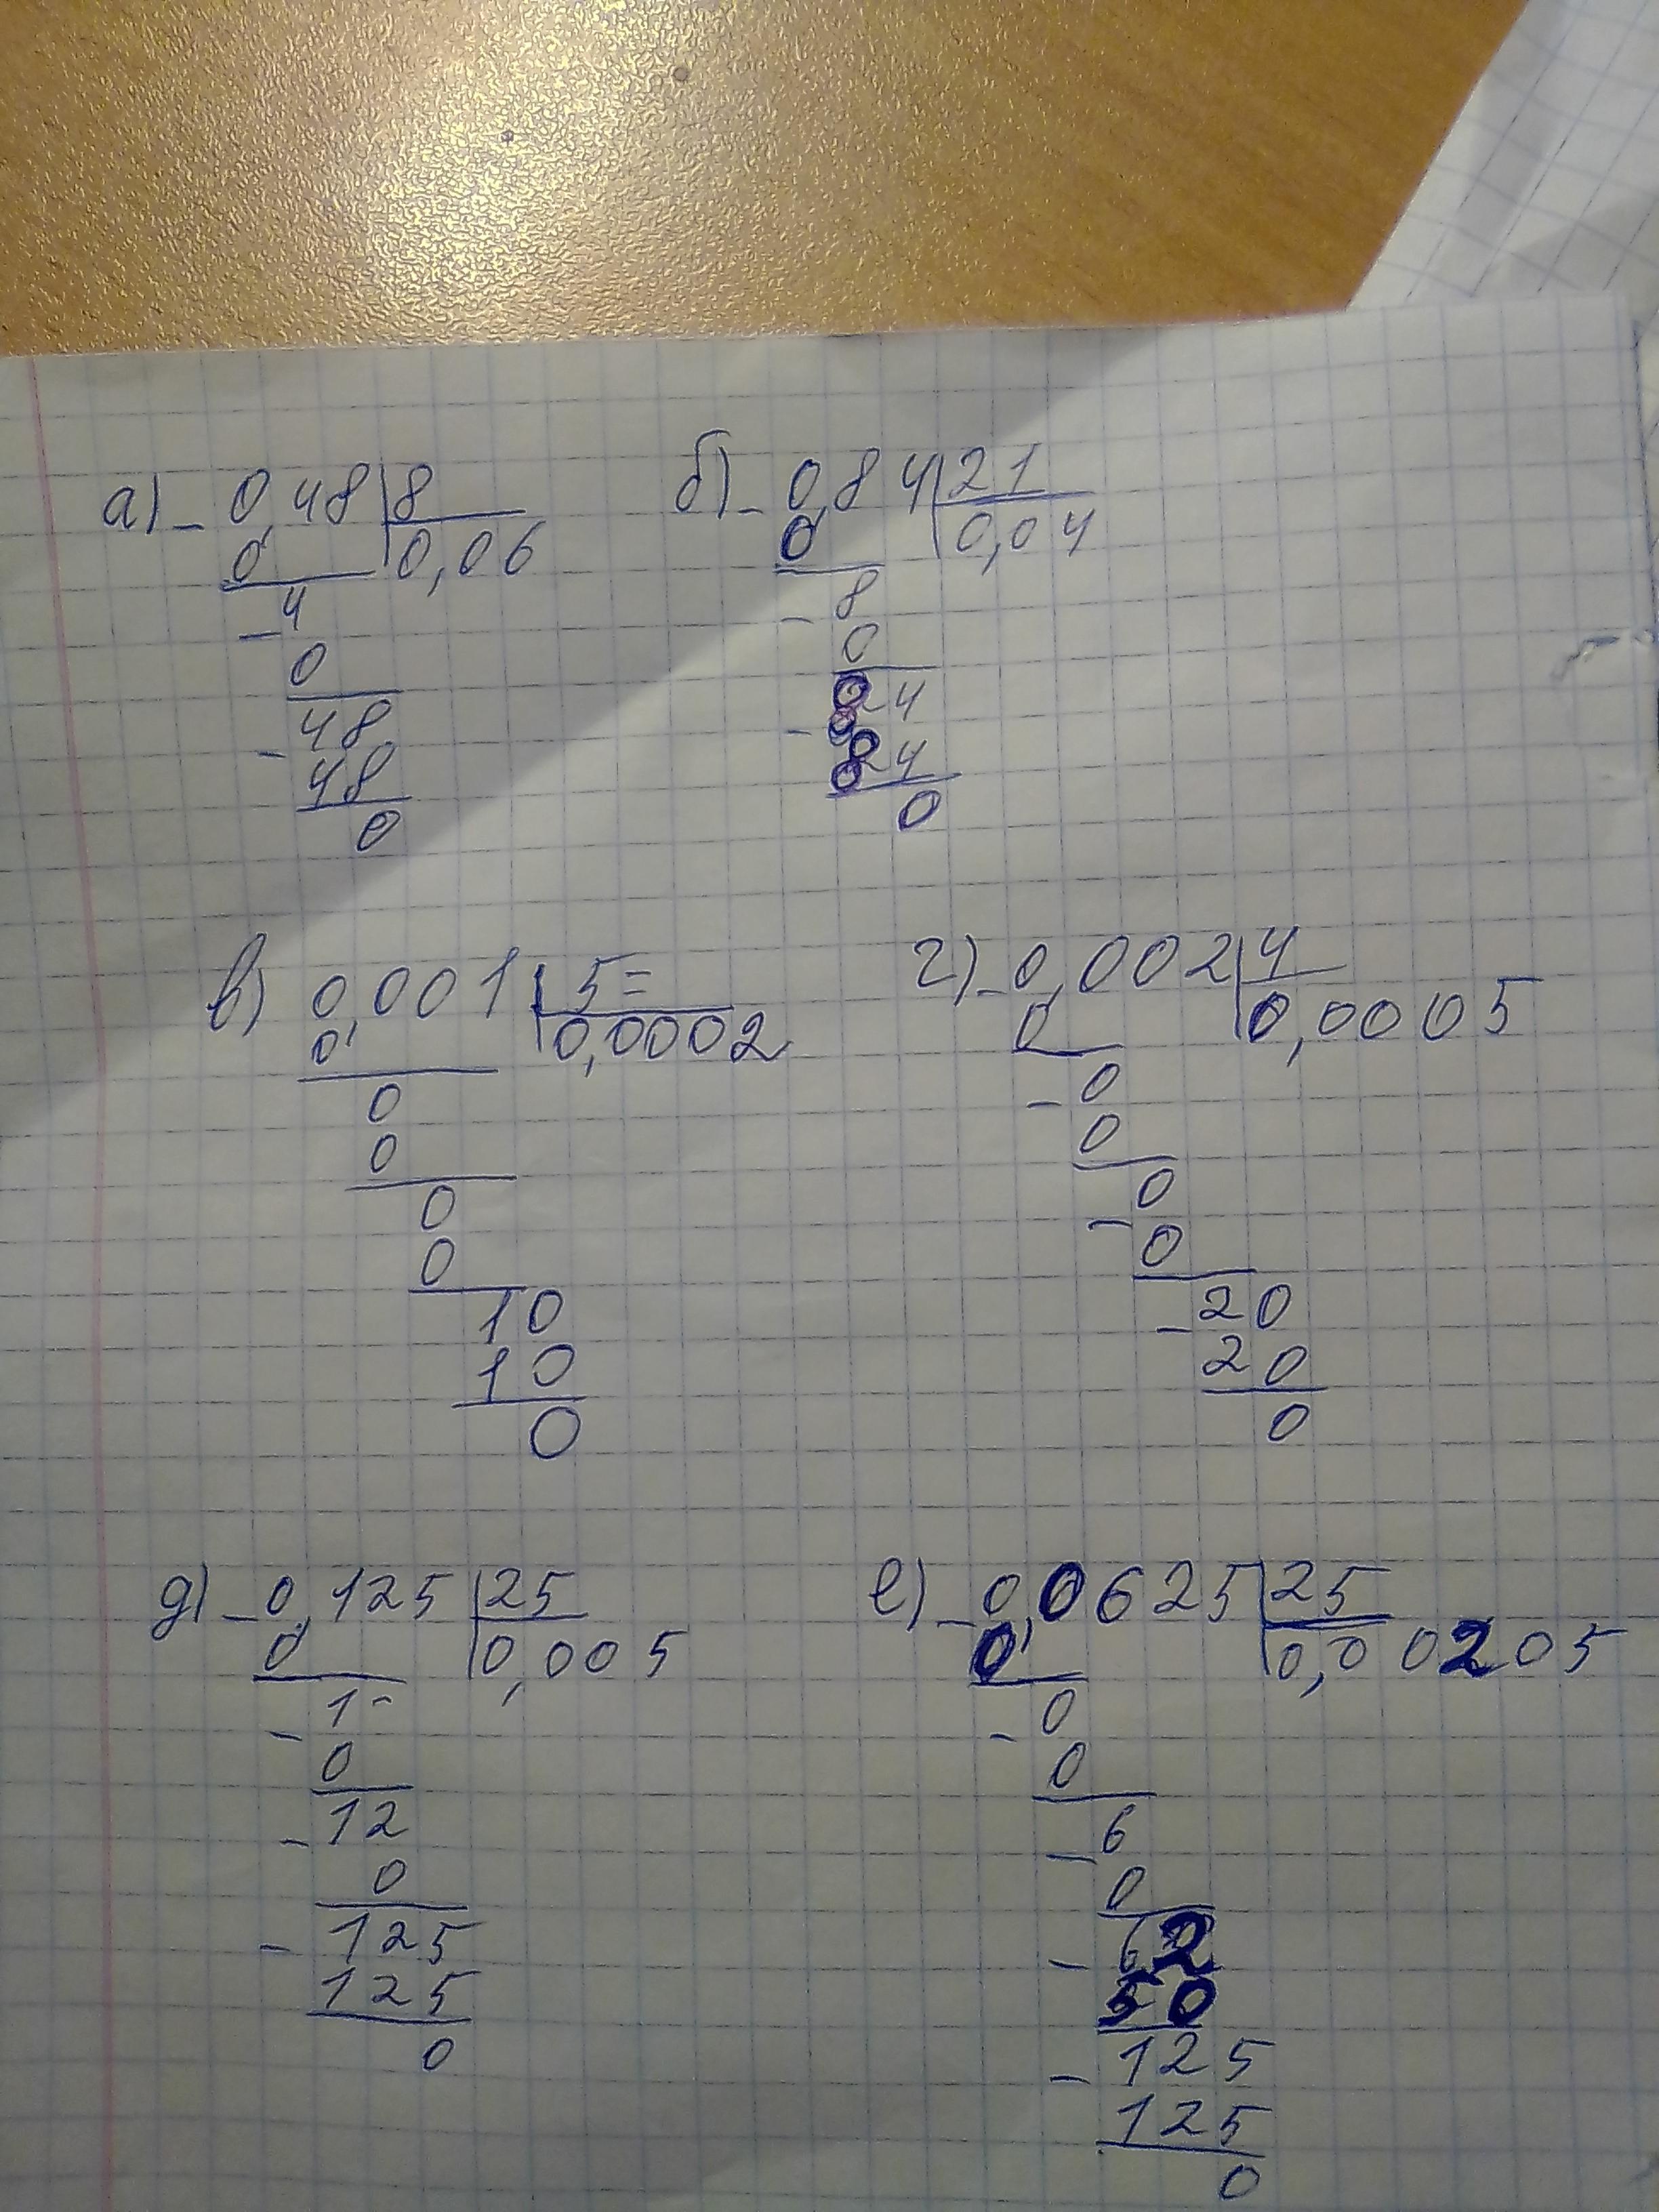 а) - 0,48 | 8
0, | 0,06
- 4
0
- 48
48
0
б) - 0,84 | 21
0, | 0,04
- 8
0
- 84
84
0
в) 0,001 | 5=
0, | 0,0002
0
0
0
0
10
10
0
г) - 0,002 | 4
0 | 0,0005
- 0
0
- 0
0
- 20
20
0
д) - 0,125 | 25
0 | 0,005
- 1
0
- 12
0
- 125
125
0
е) - 0,0625 | 25
0, | 0,00205
- 0
0
- 6
0
- 62
50
- 125
125
0